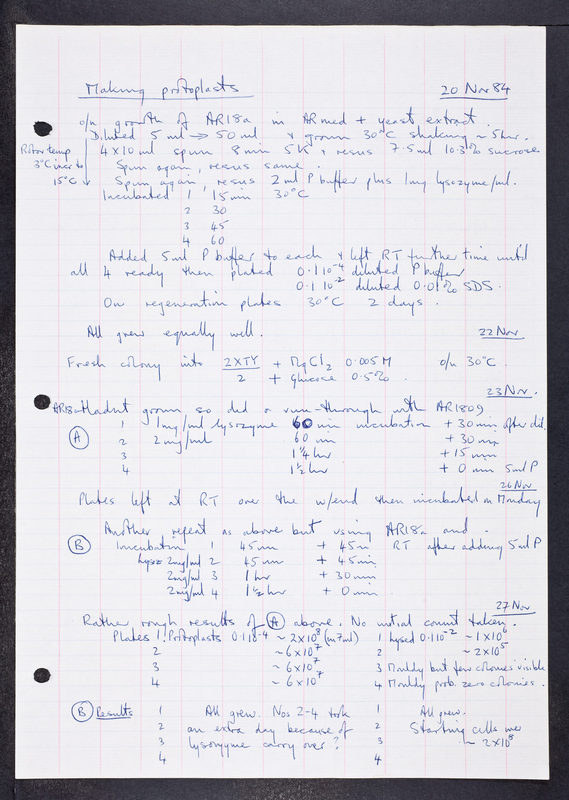 Making protoplasts 20 Nov 84
o/n growth of AR18a in AR med + yeast extract.
Diluted 5 ml → 50 ml & grown 30°C shaking ~ 5 hr.
Rotor temp 4 x 10 ml spun 8 min 5K & resus 7.5 ml 10.3% sucrose
3°C incr to Spun again, resus same.
15°C Spun again, resus 2 ml P buffer plus 1mg lysozyme/ml.
Incubated 1 15 min 30°C
2 30
3 45
4 60
Added 5 ml P buffer to each & left RT further time until
all 4 ready then plated 0.1 10⁻⁴ diluted P buffer
0.1 10⁻² diluted 0.01% SDS.
On regeneration plates 30°C 2 days.
All grew equally well. 22 Nov
Fresh colony into 2XTY/2 + MgCl2 0.005M o/n 30°C.
+ Glucose 0.5%.
23 Nov.
AR18a Hadnt grown so did a run-through with AR1809
A 1 1mg/ml lysozyme 60 min incubation + 30 min after dil.
2 2mg/ml 60 min + 30 min
3 1¼ hr + 15 min
4 1½ hr + 0 min 5ml P
26 Nov
Plates left at RT over the w/end then incubated on Monday
Another repeat as above but using AR18a and.
B Incubation 1 45 min + 45 m. RT after adding 5 ml P
lysoz 2mg/ml 2 45 min + 45 min
2mg/ml 3 1 hr + 30 min
2mg/ml 4 1½ hr + 0 min
27 Nov
Rather rough results of A above. No initial count taken.
Plates 1. Protoplasts 0.1 10⁻⁴ ~ 2x10⁸ (in 7ml) 1 lysed 0.1 10⁻² ~ 1x10⁶
2 ~ 6x10⁷ 2 ~ 2x10⁵
3 ~ 6x10⁷ 3 Mouldy but few colonies visible
4 ~ 6x10⁷ 4 Mouldy prob. zero colonies.
B Results 1 All grew. Nos 2-4 took 1 All grew.
2 an extra day because of 2 Starting cells were
3 lysozyme carry over? 3 ~ 2x10⁸
4 4